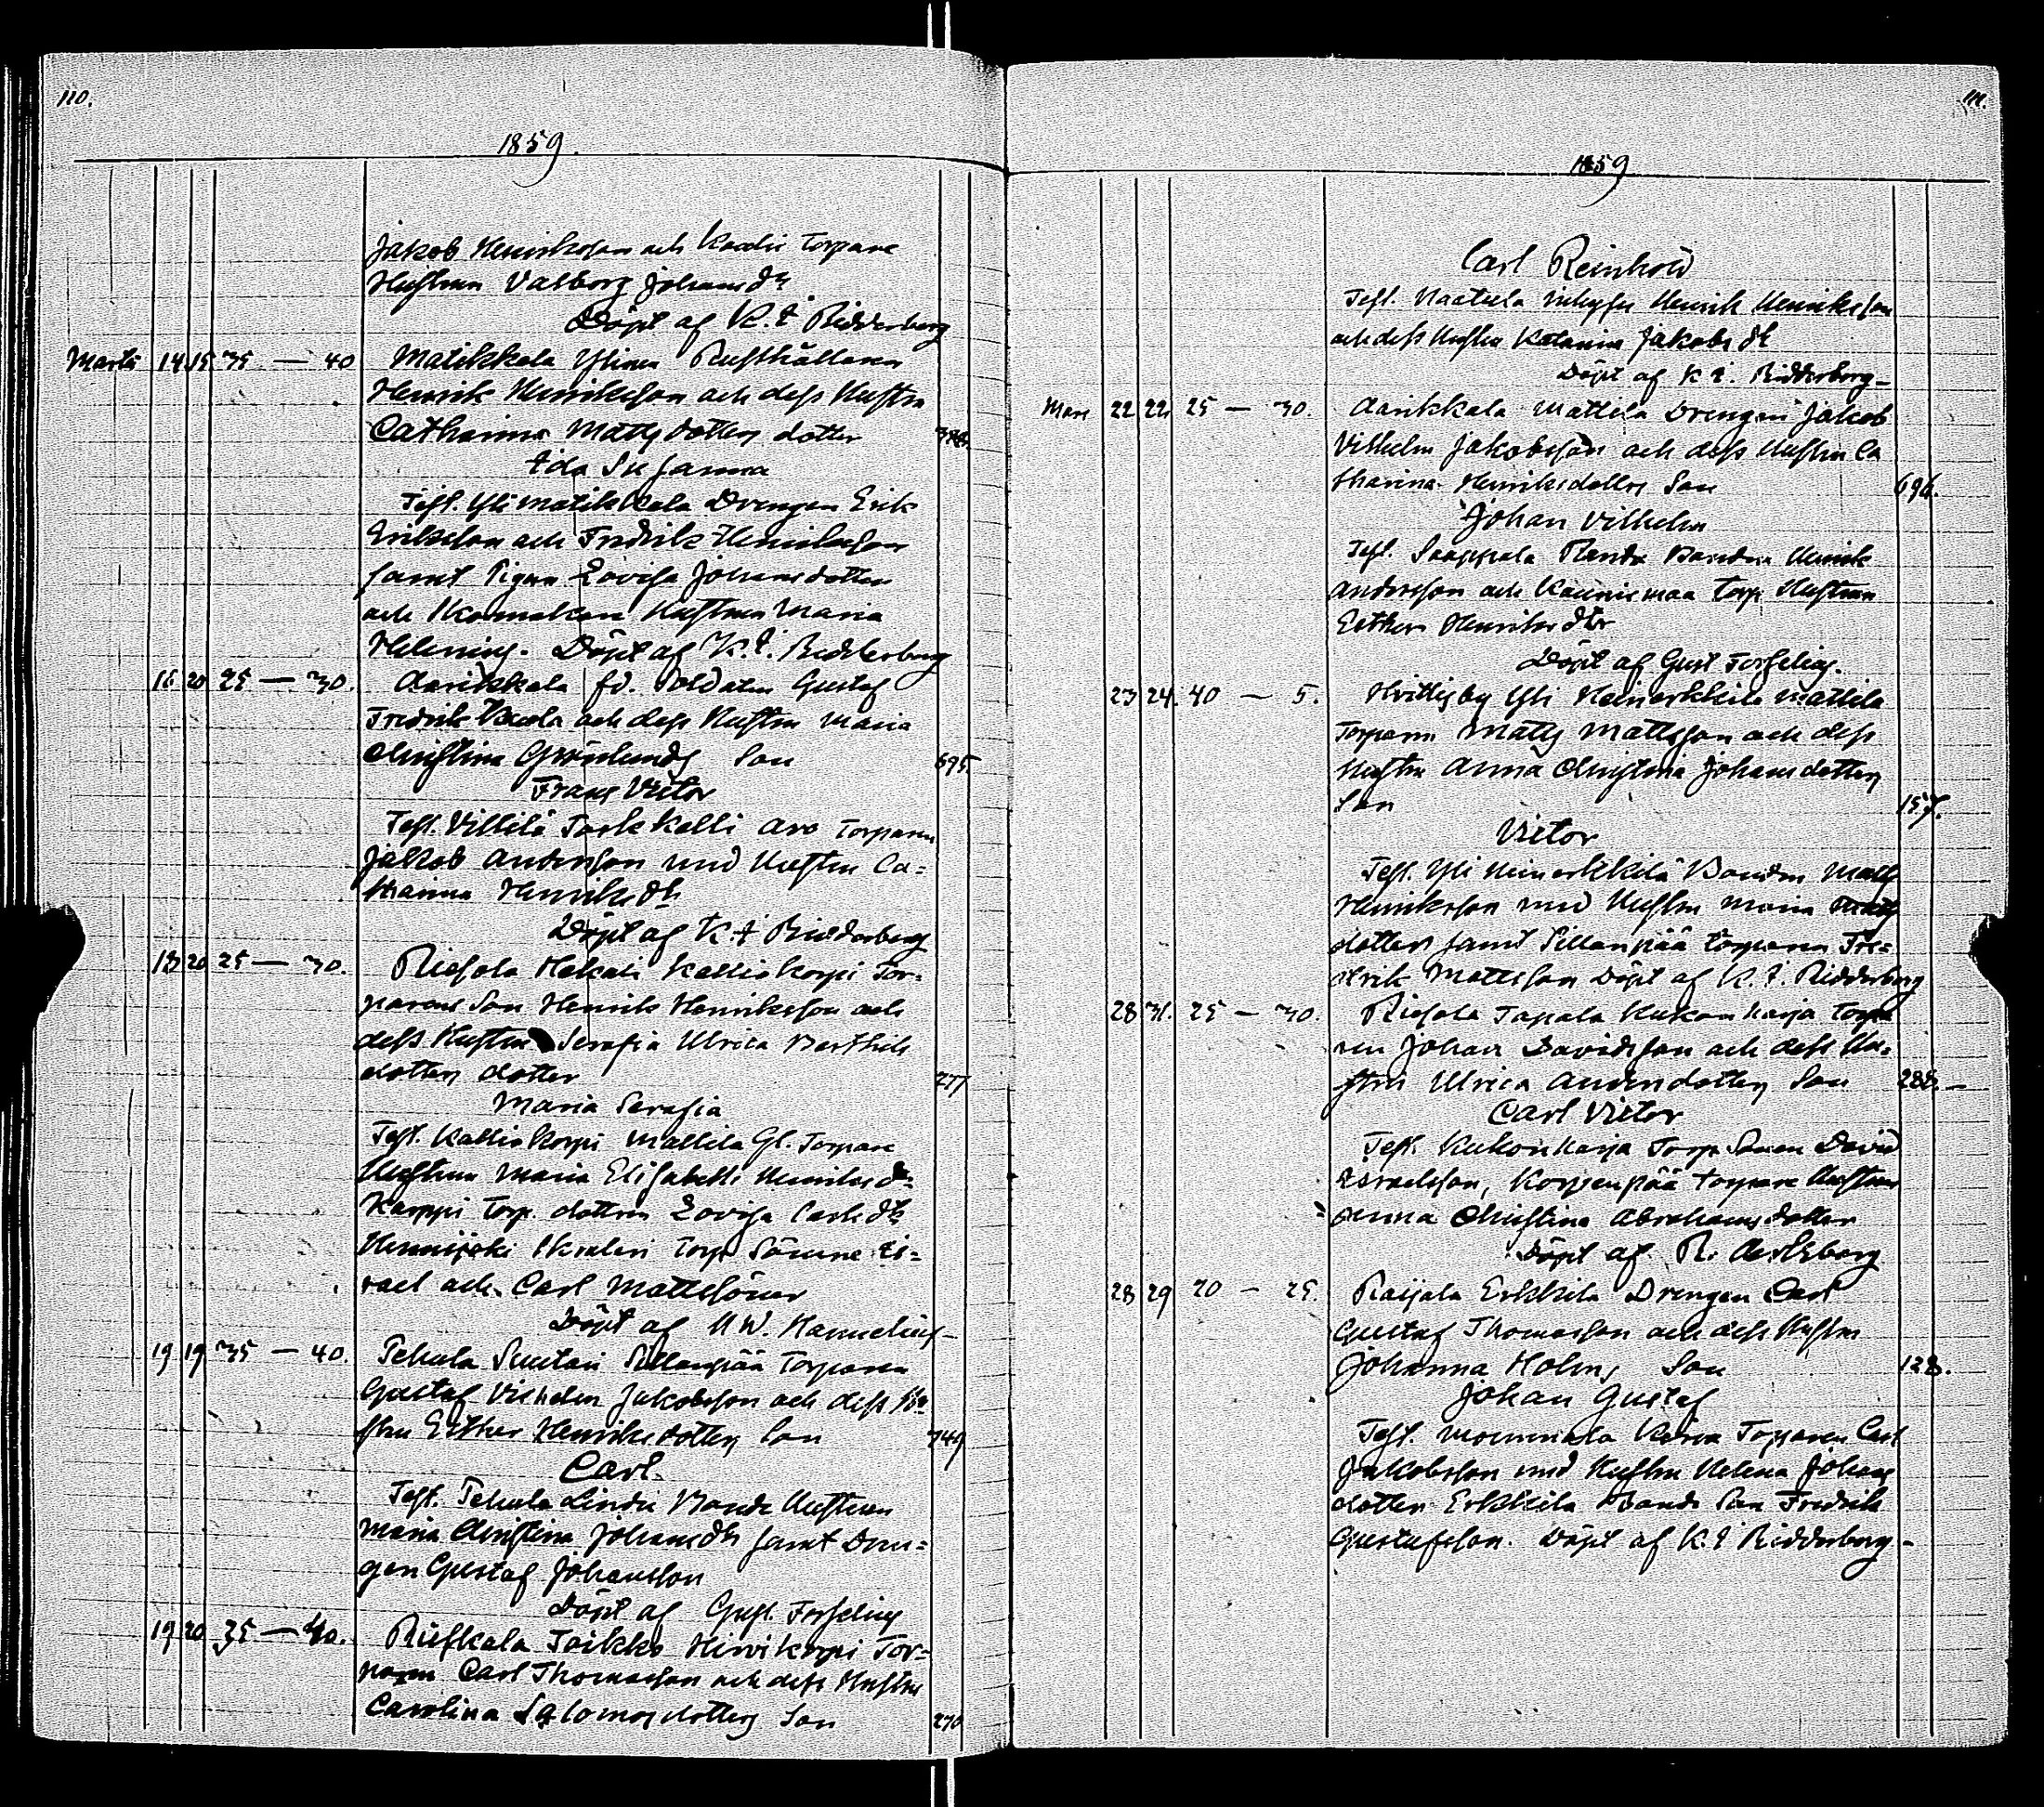 110.
1859.
Jakob Henriksson och Torpare
Hustrun Valborg Johansdr
Döpt af K. I. Ridderberg
Martii 14 15 35 — 40 Matikkala Ylinen Rusthållaren
Henrik Henriksson och dess Hustru
Catharina Mattsdotters dotter
Ida Susanna
Test. Yli Matikkala Drengen Erik
Eriksson och Fredrik Henriksson
samt Pigan Lovisa Johansdotter
och Hustrun Maria
Helenius. Döpt af K. I. Ridderberg
16 20 25 — 30. Aarikkala fd. Soldaten Gustaf
Fredrik och dess Hustru Maria
Christina Grönlunds Son 695.
Frans Victor
Test. Villilä Aro Torparen
Jakob Andersson med Hustru Ca=
tharina Henriksdr
Döpt af K. I. Ridderberg
18 20 25 — 30. Riesola Hakali Kalliokorpi Tor=
parens Son Henrik Henriksson och
dess Hustru Serafia Ulrica Berthils
dotters dotter 277
Maria Serafia
Test. Kalliokorpi Mattila Gl. Torpare
Hustrun Maria Elisabeth Henriksdr
Karppi Torp. dottren Lovisa Carlsdr
Hennijoki Torp Sönerne Is=
rael och Carl Mattssöner
Döpt af Hannelius
19 19 35 — 40. Pehula Suutari Sillanpää Torparen
Gustaf Vilhelm Jakobsson och dess Hu
stru Esther Henriksdotters Son 744
Carl.
Test. Pehula Lindu Bonde Hustrun
Maria Christina Johansdr samt Dren=
gen Gustaf Johansson
Döpt af Gust. Forselius
19 20 35 — 40. Rutikala Taikko Hirvikorpi Tor=
paren Carl Thomasson och dess Hustru
Carolina Salomosdotters Son 270
111.
1859
Carl Reinhold
Test. Naatula inhyses Henrik Henriksson
och dess Hustru Katarina Jakobsdr
Döpt af K. I. Ridderberg
Mars 22 22 25 — 30. Aarikkala Mattila Drengen Jakob
Vilhelm Jakobsson och dess Hustru Ca
tharina Henriksdotters Son 696.
Johan Vilhelm
Test. Saappala Bonden Henrik
Andersson och Kaunismaa Torp Hustrun
Esther Henriksdtr
Döpt af Gust Forselius.
23 24. 40 — 5. Hvittisby Yli Heinerkkilä Mattila
Torparen Matts Mattsson och dess
Hustru Anna Christina Johansdotters
Son 157.
Victor
Test. Yli Heinerkkilä Bonden Matts
Henriksson med Hustru Maria Matts
dotter samt Sillanpää torparen Fre=
drik Mattsson Döpt af K. I. Ridderberg
28 31. 25 — 30. Riesola Tapala Kukonharja Torpa
ren Johan Davidsson och dess Hu=
stru Ulrica Andersdotters Son 288.
Carl Victor
Test. Kukonharja Torp Sonen David
Israelsson, Korpenpää torpare Hustrun
Anna Christina Abrahamsdotter
Döpt af R. Carlsberg
28 29 20 — 25. Raijala Erkkilä Drengen Carl
Gustaf Thomasson och dess Hustru
Johanna Holms Son 128.
Johan Gustaf
Test. Mommola Torparen Carl
Jakobsson med Hustru Helena Johans
dotter Erkkilä Bonde Son Fredrik
Gustafsson. Döpt af K. I. Ridderberg